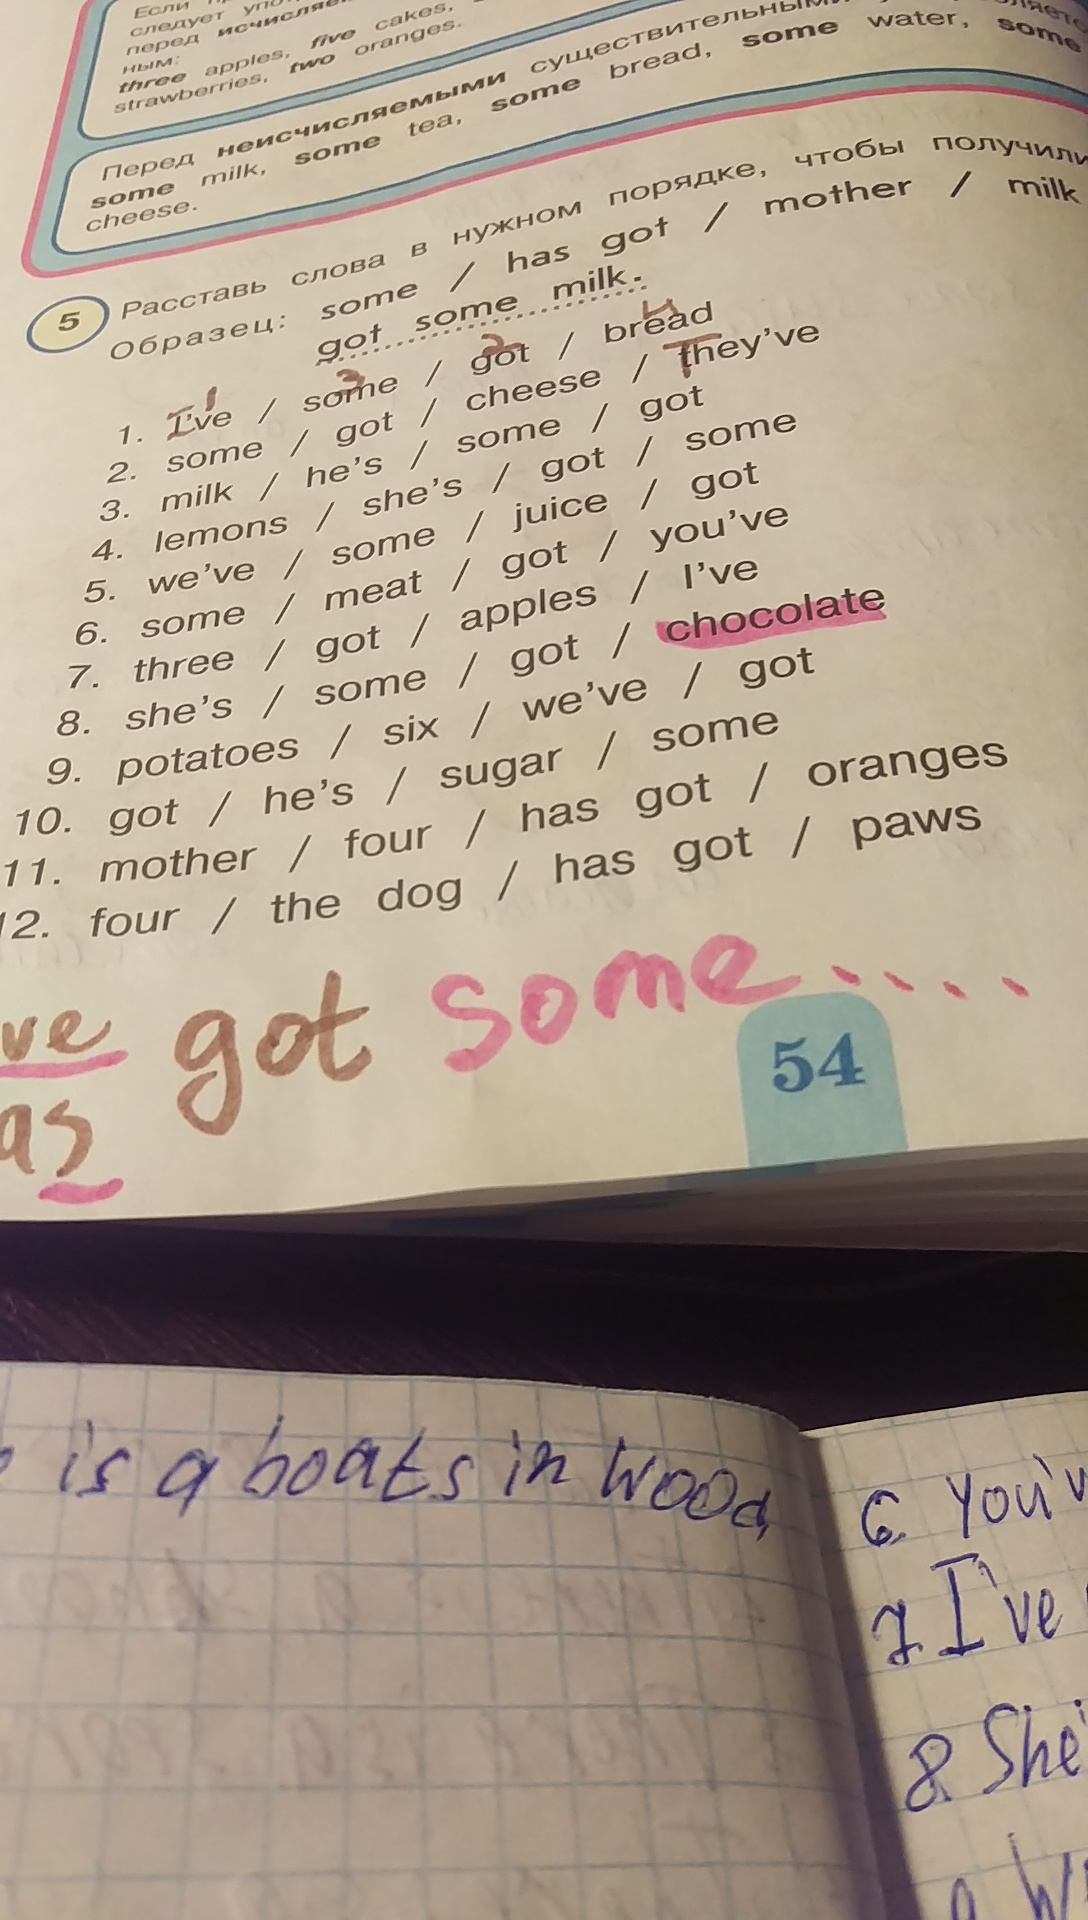 Если
следует
перед исчисляем
ным:
three apples, five cakes,
strawberries, two oranges.
Перед неисчисляемыми существительными
some milk, some tea, some bread, some water, some
cheese.
5 Расставь слова в нужном порядке, чтобы получили
Образец: some / has got / mother / milk
got some milk.
1 3 2 4
1. I've / some / got / bread
2. some / got / cheese / They've
3. milk / he's / some / got
4. lemons / she's / got / some
5. we've / some / juice / got
6. some / meat / got / you've
7. three / got / apples / I've
8. she's / some / got / chocolate
9. potatoes / six / we've / got
10. got / he's / sugar / some
11. mother / four / has got / oranges
12. four / the dog / has got / paws
ve got some.....
as
54
is a boats in wood
6. You'v
7. I've
8. She'